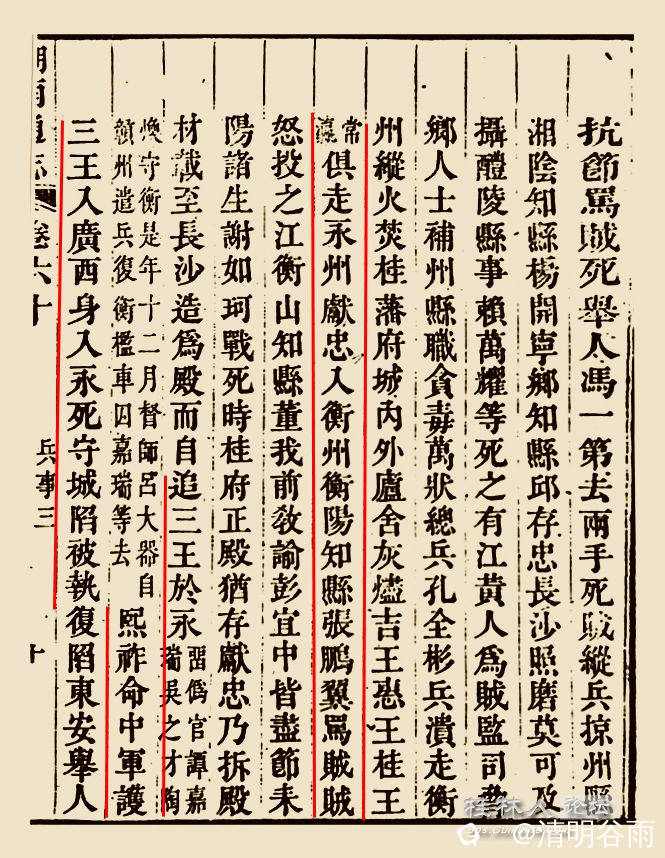 抗節罵賊死舉人馮一第去兩手死賊縱兵掠州縣
湘陰知縣楊開寧鄉知縣邱存忠長沙照磨莫可及
攝醴陵縣事賴萬耀等死之有江黃人爲賊監司
鄉人士補州縣職貪毒萬狀總兵孔全彬兵潰走衡
州縱火焚桂藩府城內外廬舍灰燼吉王惠王桂王
常瀛俱走永州獻忠入衡州衡陽知縣張鵬翼罵賊賊
怒投之江衡山知縣董我前敎諭彭宜中皆盡節耒
陽諸生謝如珂戰死時桂府正殿猶存獻忠乃拆殿
材載至長沙造爲殿而自追三王於永留僞官譚嘉瑞吳之才陶
煥守衡是年十二月督師呂大器自贛州遣兵復衡檻車囚嘉瑞等去熙祚命中軍護
三王入廣西身入永死守城陷被執復陷東安舉人
湖南通志 卷六十 兵事三 十
桂林人论坛
@清明谷雨